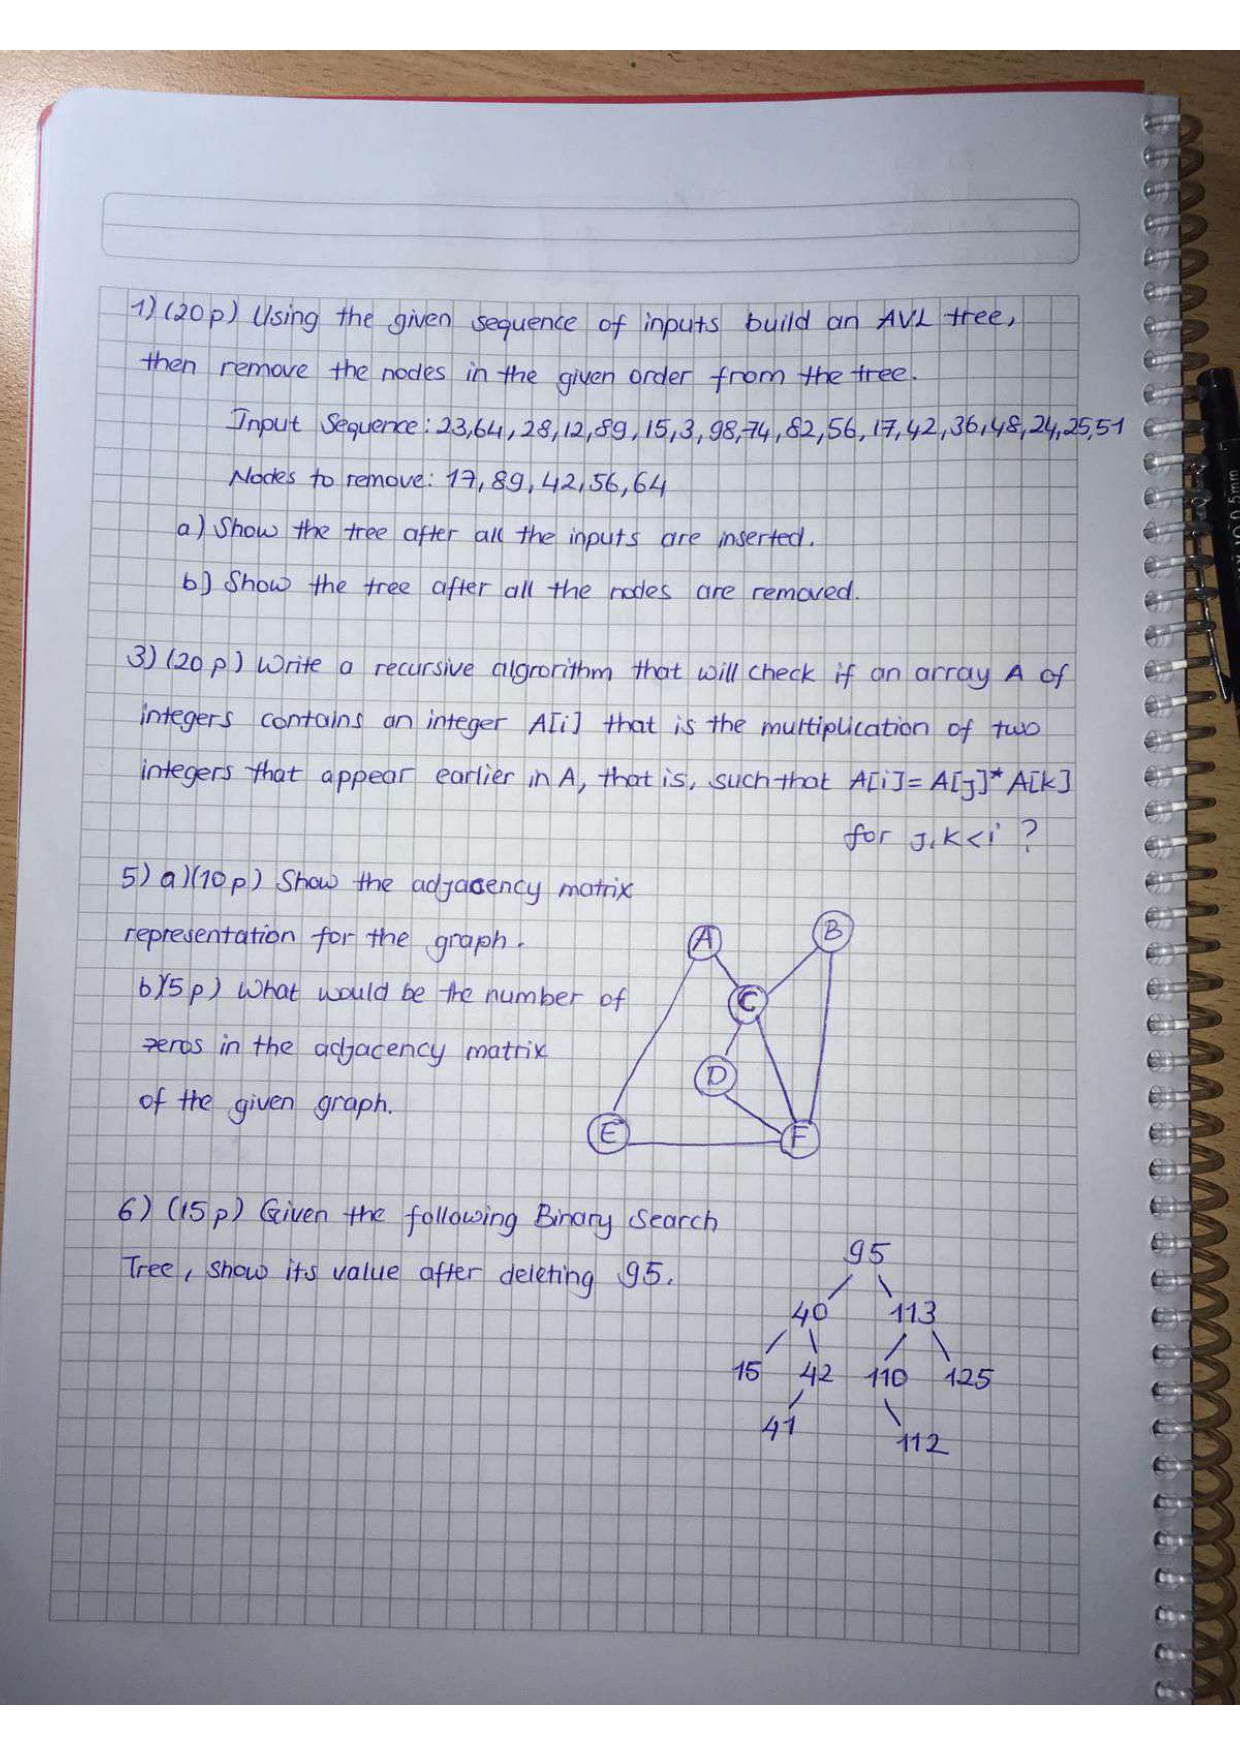 1) (20p) Using the given sequence of inputs build an AVL tree,
then remove the nodes in the given order from the tree.
Input Sequence: 23,64,28,12,89,15,3,98,74,82,56,17,42,36,48,24,25,51
Nodes to remove: 17,89,42,56,64
a) Show the tree after all the inputs are inserted.
b) Show the tree after all the nodes are removed.
3) (20p) Write a recursive algrorithm that will check if an array A of
integers contains an integer A[i] that is the multiplication of two
integers that appear earlier in A, that is, such that A[i]=A[j]*A[k]
for j,k<i ?
5) a)(10p) Show the adjacency matrix
representation for the graph.
b)(5p) What would be the number of
zeros in the adjacency matrix
of the given graph.
A B
C
D
E F
6) (15p) Given the following Binary Search
Tree, show its value after deleting 95.
95
40 113
15 42 110 125
41 112
0.5mm